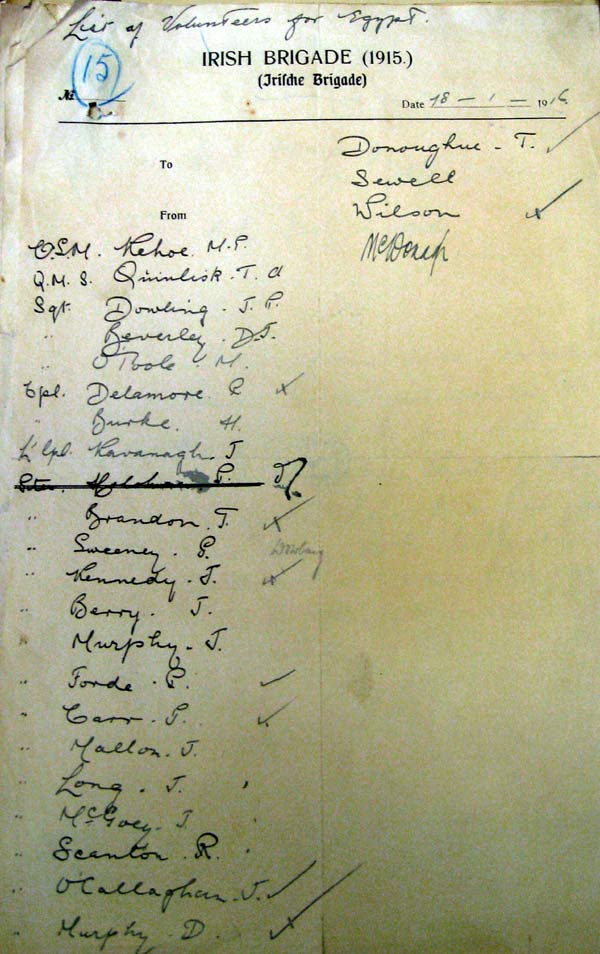 List of Volunteers for Egypt.
15
IRISH BRIGADE (1915.)
(Irische Brigade)
No.
Date 18 - 1 - 1916.
To
From
Donoughue - T.
Sewell
Wilson
McDonagh
C.S.M. Kehoe. M. P.
Q.M.S. Quinlisk. T. A
Sgt. Dowling. J. P.
" Beverley. D.J.
" O'Toole. M.
Cpl. Delamore. P
" Burke. H.
L'Cpl. Kavanagh. J
P.
" Brandon. T.
" Sweeney. P.
" Kennedy. J.
" Berry. J.
" Murphy. J.
" Forde. P.
" Carr. P.
" Mallon. J.
" Long. J.
" McGoey. J.
" Scanlon. R.
" O'Callaghan. J.
" Murphy. D.